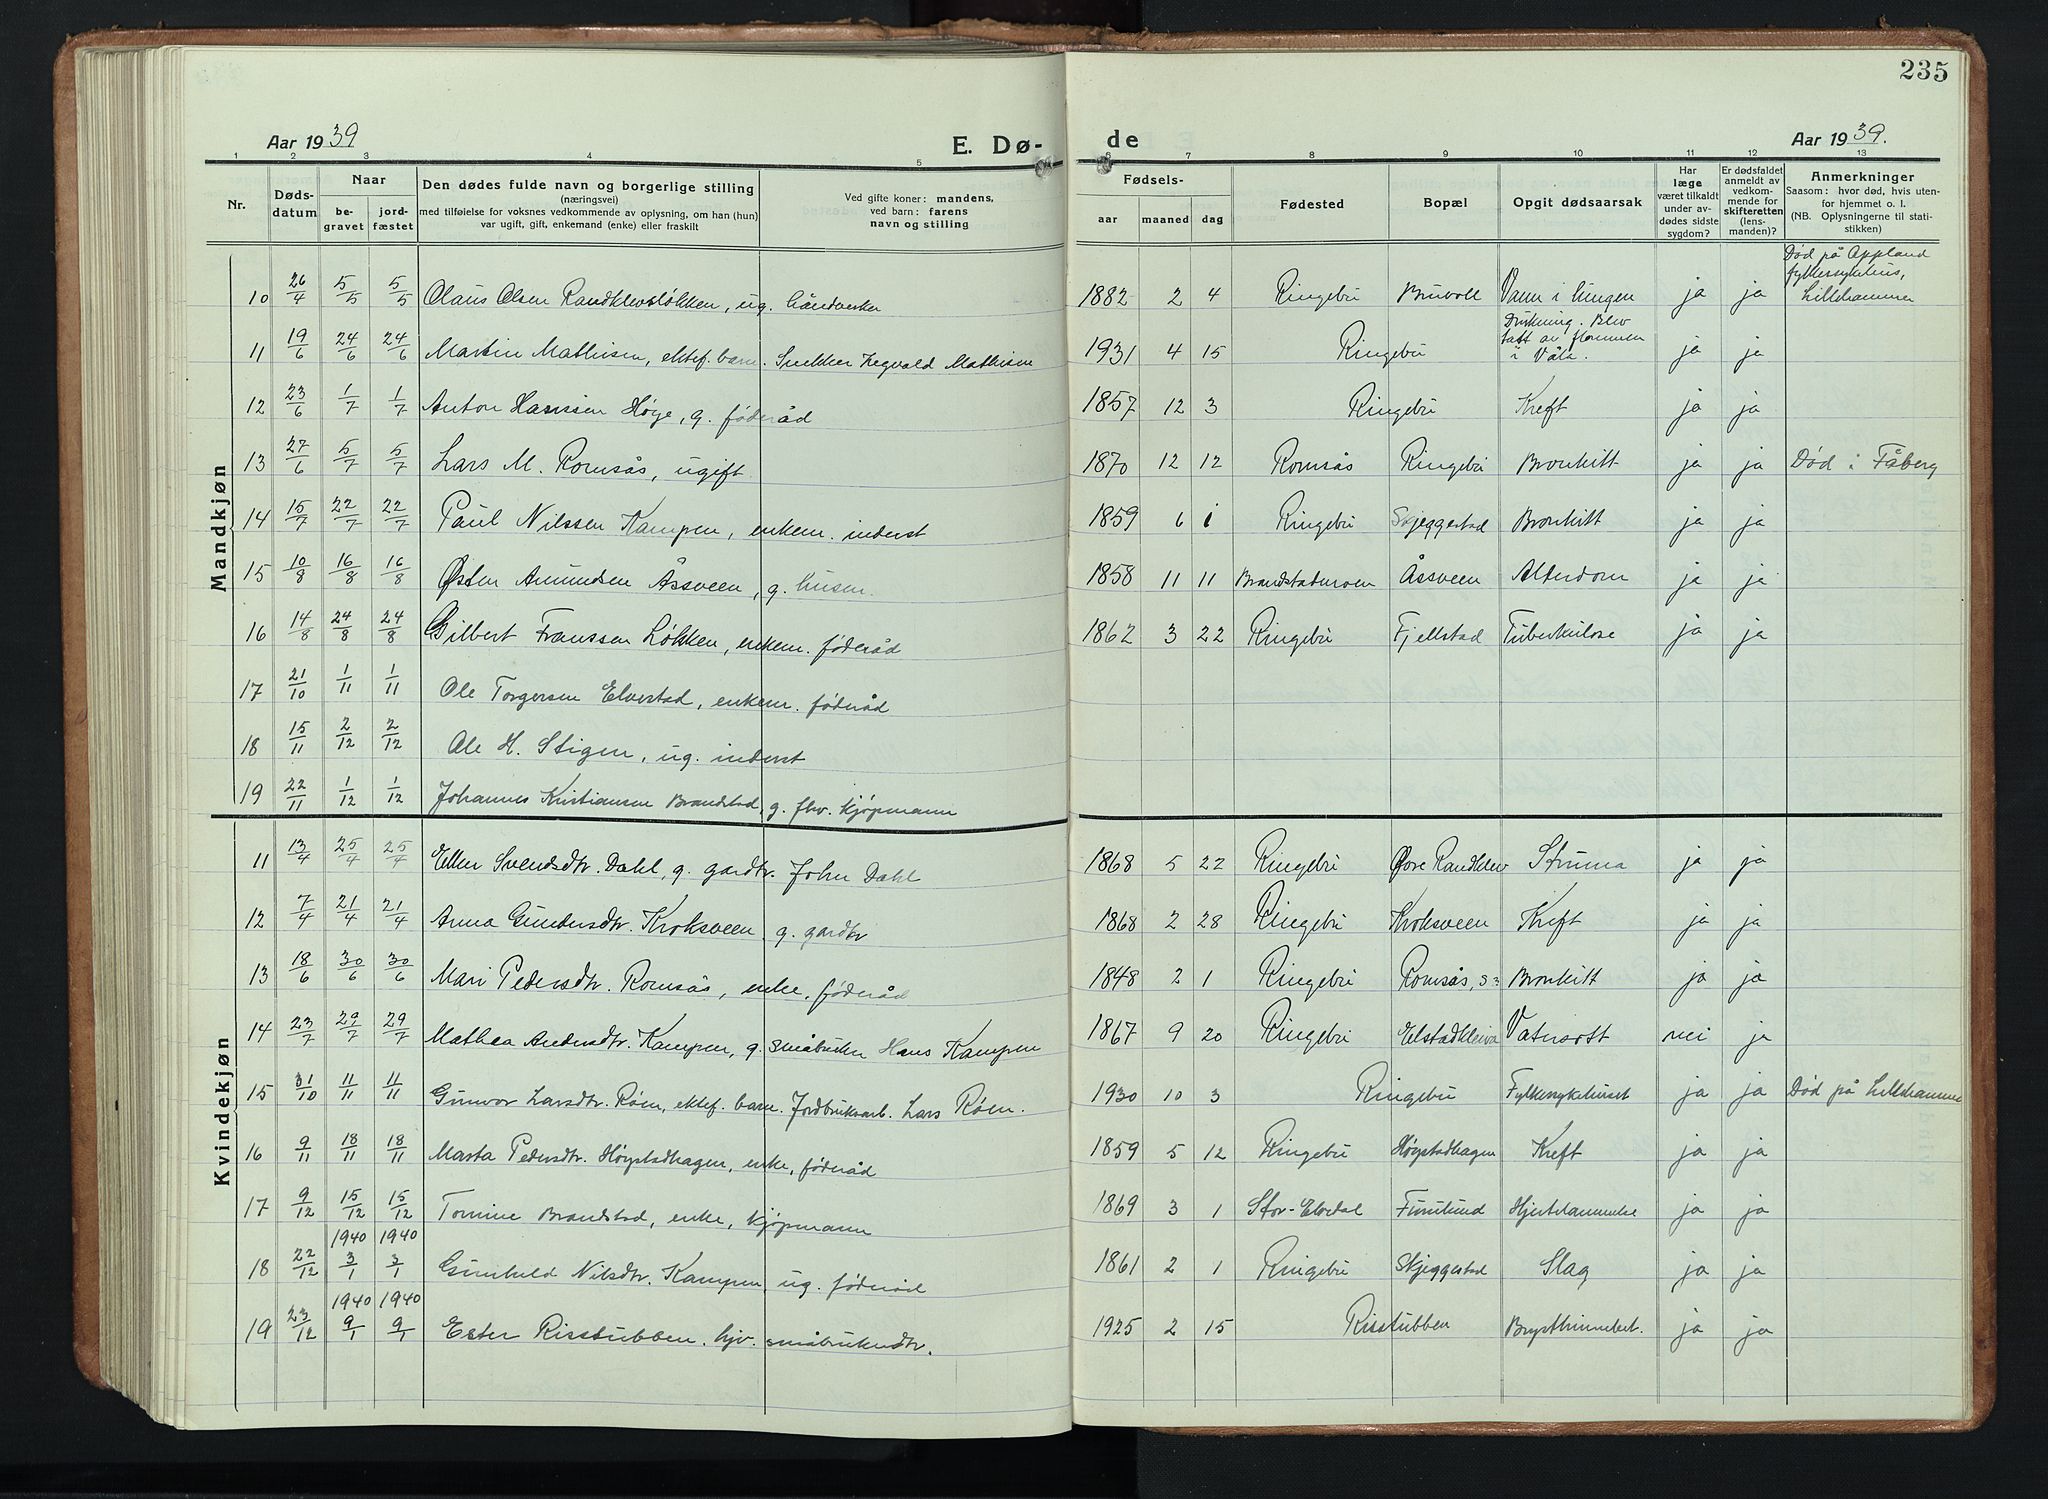 235
Aar 1939
E. Dø-
de
Aar 1939.
1 2 3 4 5 6 7 8 9 10 11 12 13
Nr.
Døds-
datum
Naar
be-
gravet
jord-
fæstet
Den dødes fulde navn og borgerlige stilling
(næringsvei)
med tilføielse for voksnes vedkommende av oplysning, om han (hun)
var ugift, gift, enkemand (enke) eller fraskilt
Ved gifte koner: mandens,
ved barn: farens
navn og stilling
Fødsels-
aar maaned dag
Fødested
Bopæl
Opgit dødsaarsak
Har
læge
været tilkaldt
under av-
dødes sidste
sygdom?
Er dødsfaldet
anmeldt av
vedkom-
mende for
skifteretten
(lens-
manden)?
Anmerkninger
Saasom: hvor død, hvis uten-
for hjemmet o. l.
(NB. Oplysningerne til stati-
stikken)
Mandkjøn
10 26/4 5/5 5/5 Olaus Olsen Randklevsløkken, ug. håndverker 1882 2 4 Ringebu Bruvoll Vann i lungen ja ja Død på Oppland fylkessykehus, Lillehammer
11 19/6 24/6 24/6 Martin Mathisen, ektef. barn. Snekker Regvald Mathisen 1931 4 15 Ringebu Drukning. Blev tatt av flommen i Våla. ja ja
12 23/6 1/7 1/7 Anton Hanssen Høge, g. føderåd 1857 12 3 Ringebu Kreft ja ja
13 27/6 5/7 5/7 Lars M. Romsås, ugift 1870 12 12 Romsås Ringebu Bronkitt ja ja Død i Fåberg
14 15/7 22/7 22/7 Paul Nilssen Kampen, enkem. inderst 1859 6 1 Ringebu Skjeggestad Bronkitt ja ja
15 10/8 16/8 16/8 Østen Amundsen Åssveen, g. husm. 1858 11 11 Brandstadmoen Åssveen Alderdom ja ja
16 14/8 24/8 24/8 Gilbert Franssen Løkken, enkem. føderåd 1862 3 22 Ringebu Fjellstad Tuberkulose ja ja
17 21/10 1/11 1/11 Ole Torgersen Elvestad, enkem. føderåd
18 15/11 2/12 2/12 Ole H. Stigen, ug. inderst
19 22/11 1/12 1/12 Johannes Kristiansen Brandstad, g. fhv. kjøpmann
Kvindekjøn
11 13/4 25/4 25/4 Ellen Svendsdtr. Dahl, g. gardbr. John Dahl 1868 5 22 Ringebu Øvre Randklev Struma ja ja
12 7/4 21/4 21/4 Anna Gundersdtr. Kroksveen, g. gardbr 1868 2 28 Ringebu Kroksveen Kreft ja ja
13 18/6 30/6 30/6 Mari Pedersdtr. Romsås, enke, føderåd 1848 2 1 Ringebu Romsås, Bronkitt ja ja
14 23/7 29/7 29/7 Mathea Andersdtr. Kampen, g. småbruker Hans Kampen 1867 9 20 Ringebu Elstadkleiva Vatnsott nei ja
15 31/10 11/11 11/11 Gunvor Larsdtr. Røen, ektef. barn. Jordbruksarb. Lars Røen. 1930 10 3 Ringebu Fylkessykehuset ja ja Død på Lillehammer
16 9/11 18/11 18/11 Marta Pedersdtr. Høystadhagen, enke, føderåd 1859 5 12 Ringebu Høystadhagen Kreft ja ja
17 9/12 15/12 15/12 Tomine Brandstad, enke, kjøpmann 1869 3 1 Stor-Elvdal Furulund Hjertelammelse ja ja
1940 1940
18 22/12 3/1 3/1 Gunhild Nilsdtr. Kampen, ug. føderåd 1861 2 1 Ringebu Skjeggestad Slag ja ja
1940 1940
19 23/12 9/1 9/1 Ester Risstubben. hjv. småbrukerdtr. 1925 2 15 Risstubben Brysthinnebet. ja ja